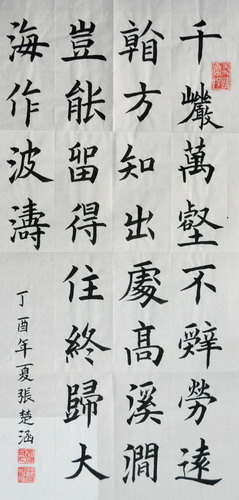 千巖萬壑不辭勞遠
看方知出處高溪澗
豈能留得住終歸大
海作波濤
丁酉年夏張楚涵